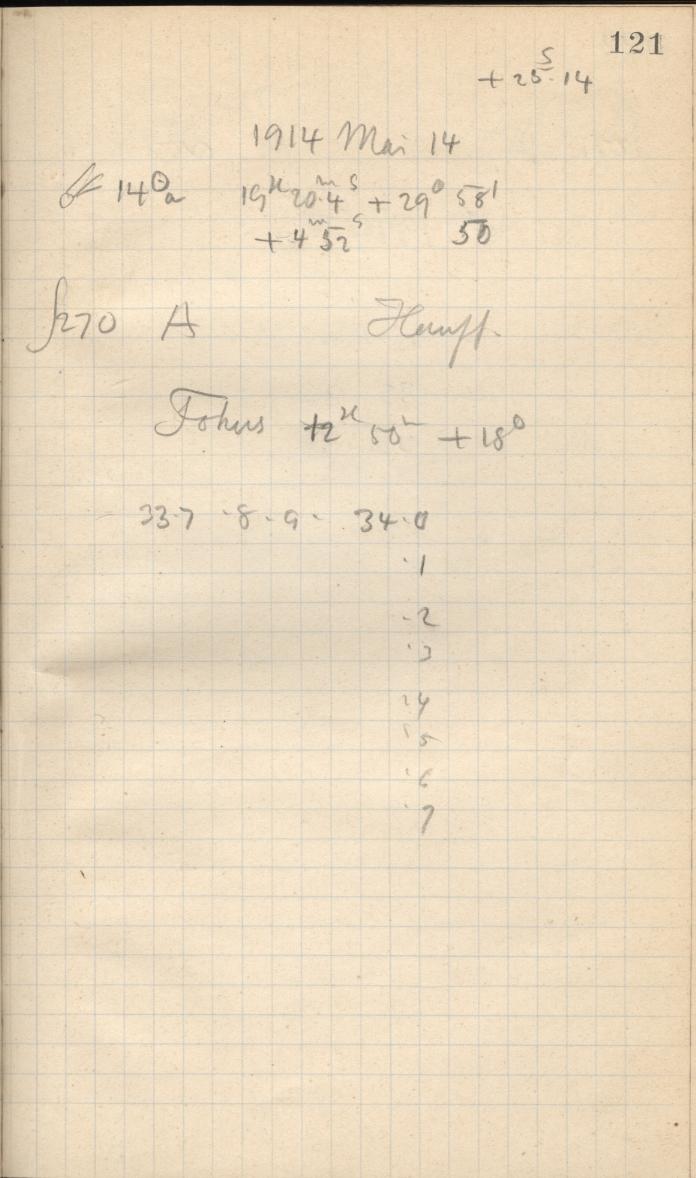 121
+ 25.ˢ14
1914 Mai 14
14 19ʰ 20.ᵐ4ˢ + 29⁰ 58'
+ 4ᵐ 52ˢ 50
270 A Hauff.
Fokus 12ʰ 50ᵐ + 18⁰
33.7 .8 .9 . 34.0
.1
.2
.3
.4
.5
.6
.7